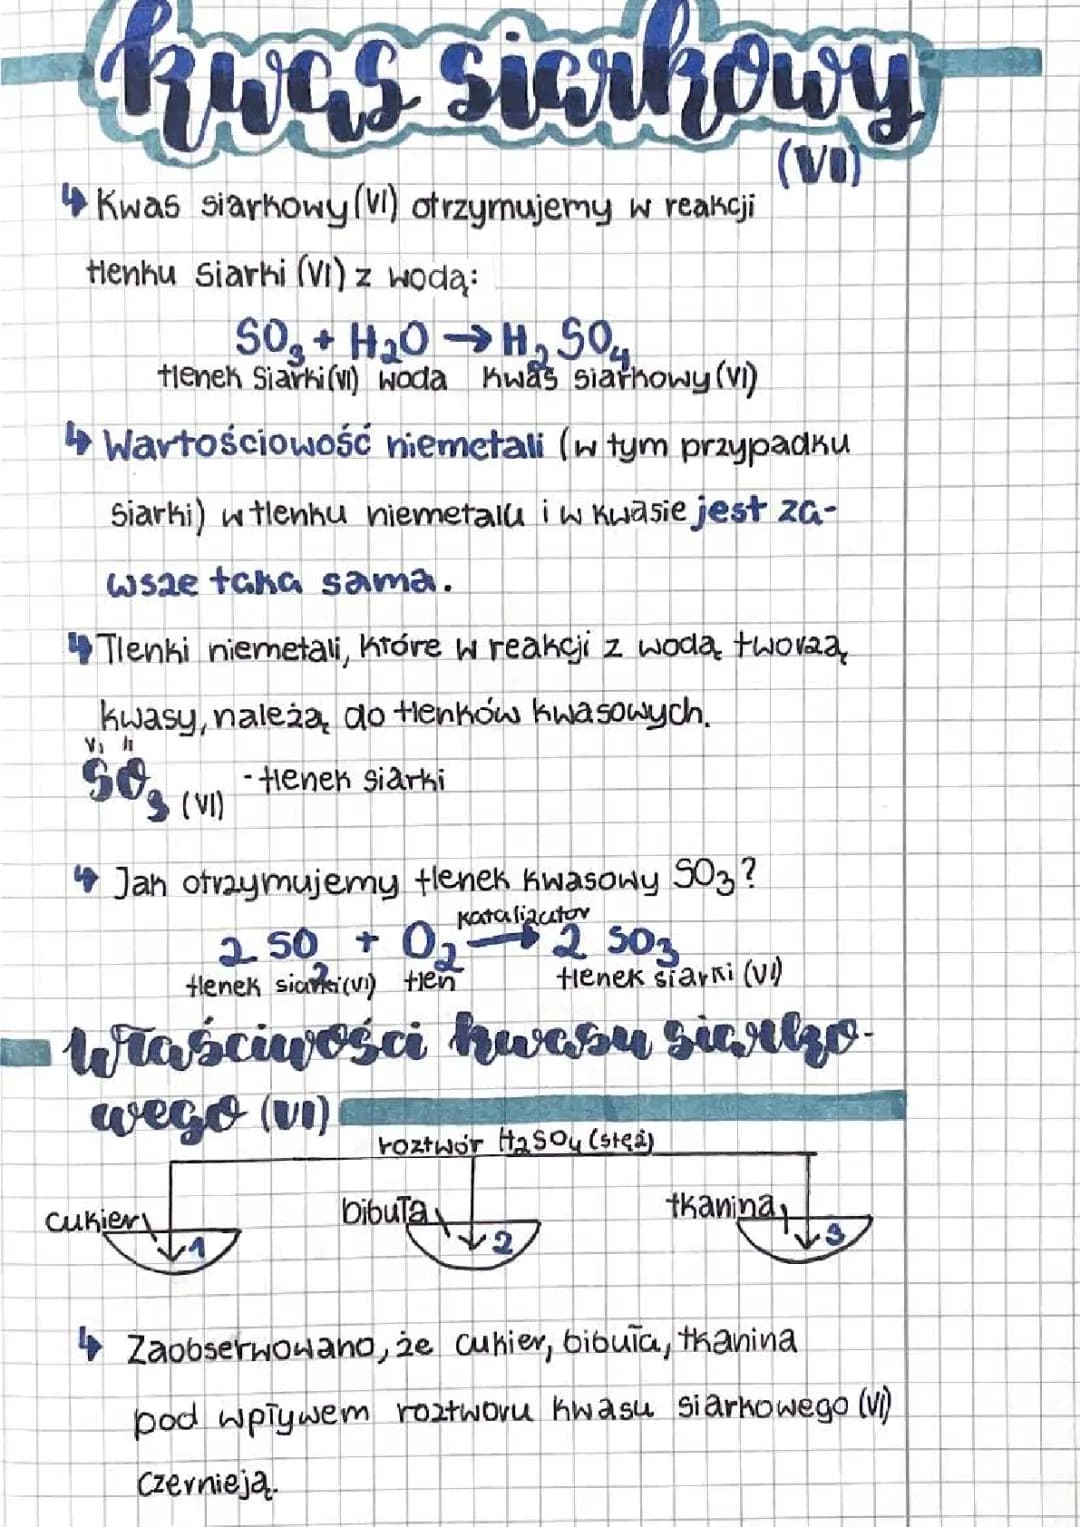 kwas siarkowy
(VI)
↳ Kwas siarkowy (VI) otrzymujemy w reakcji
tlenku siarki (VI) z wodą:
SO₃ + H₂O → H₂SO₄
tlenek siarki (VI) woda kwas siarkowy (VI)
↳ Wartościowość niemetali (w tym przypadku
siarki) w tlenku niemetalu i w kwasie jest za-
wsze taka sama.
↳ Tlenki niemetali, które w reakcji z wodą tworzą
kwasy, należą do tlenków kwasowych.
VI II
SO₃ (VI) - tlenek siarki
↳ Jak otrzymujemy tlenek kwasowy SO₃?
katalizator
2 SO₂ + O₂ → 2 SO₃
tlenek siarki (VI) tlen tlenek siarki (VI)
Właściwości kwasu siarko-
wego (VI)
roztwór H₂SO₄ (stęż)
cukier bibuła tkanina
1 2 3
↳ Zaobserwowano, że cukier, bibuła, tkanina
pod wpływem roztworu kwasu siarkowego (VI)
czernieją.